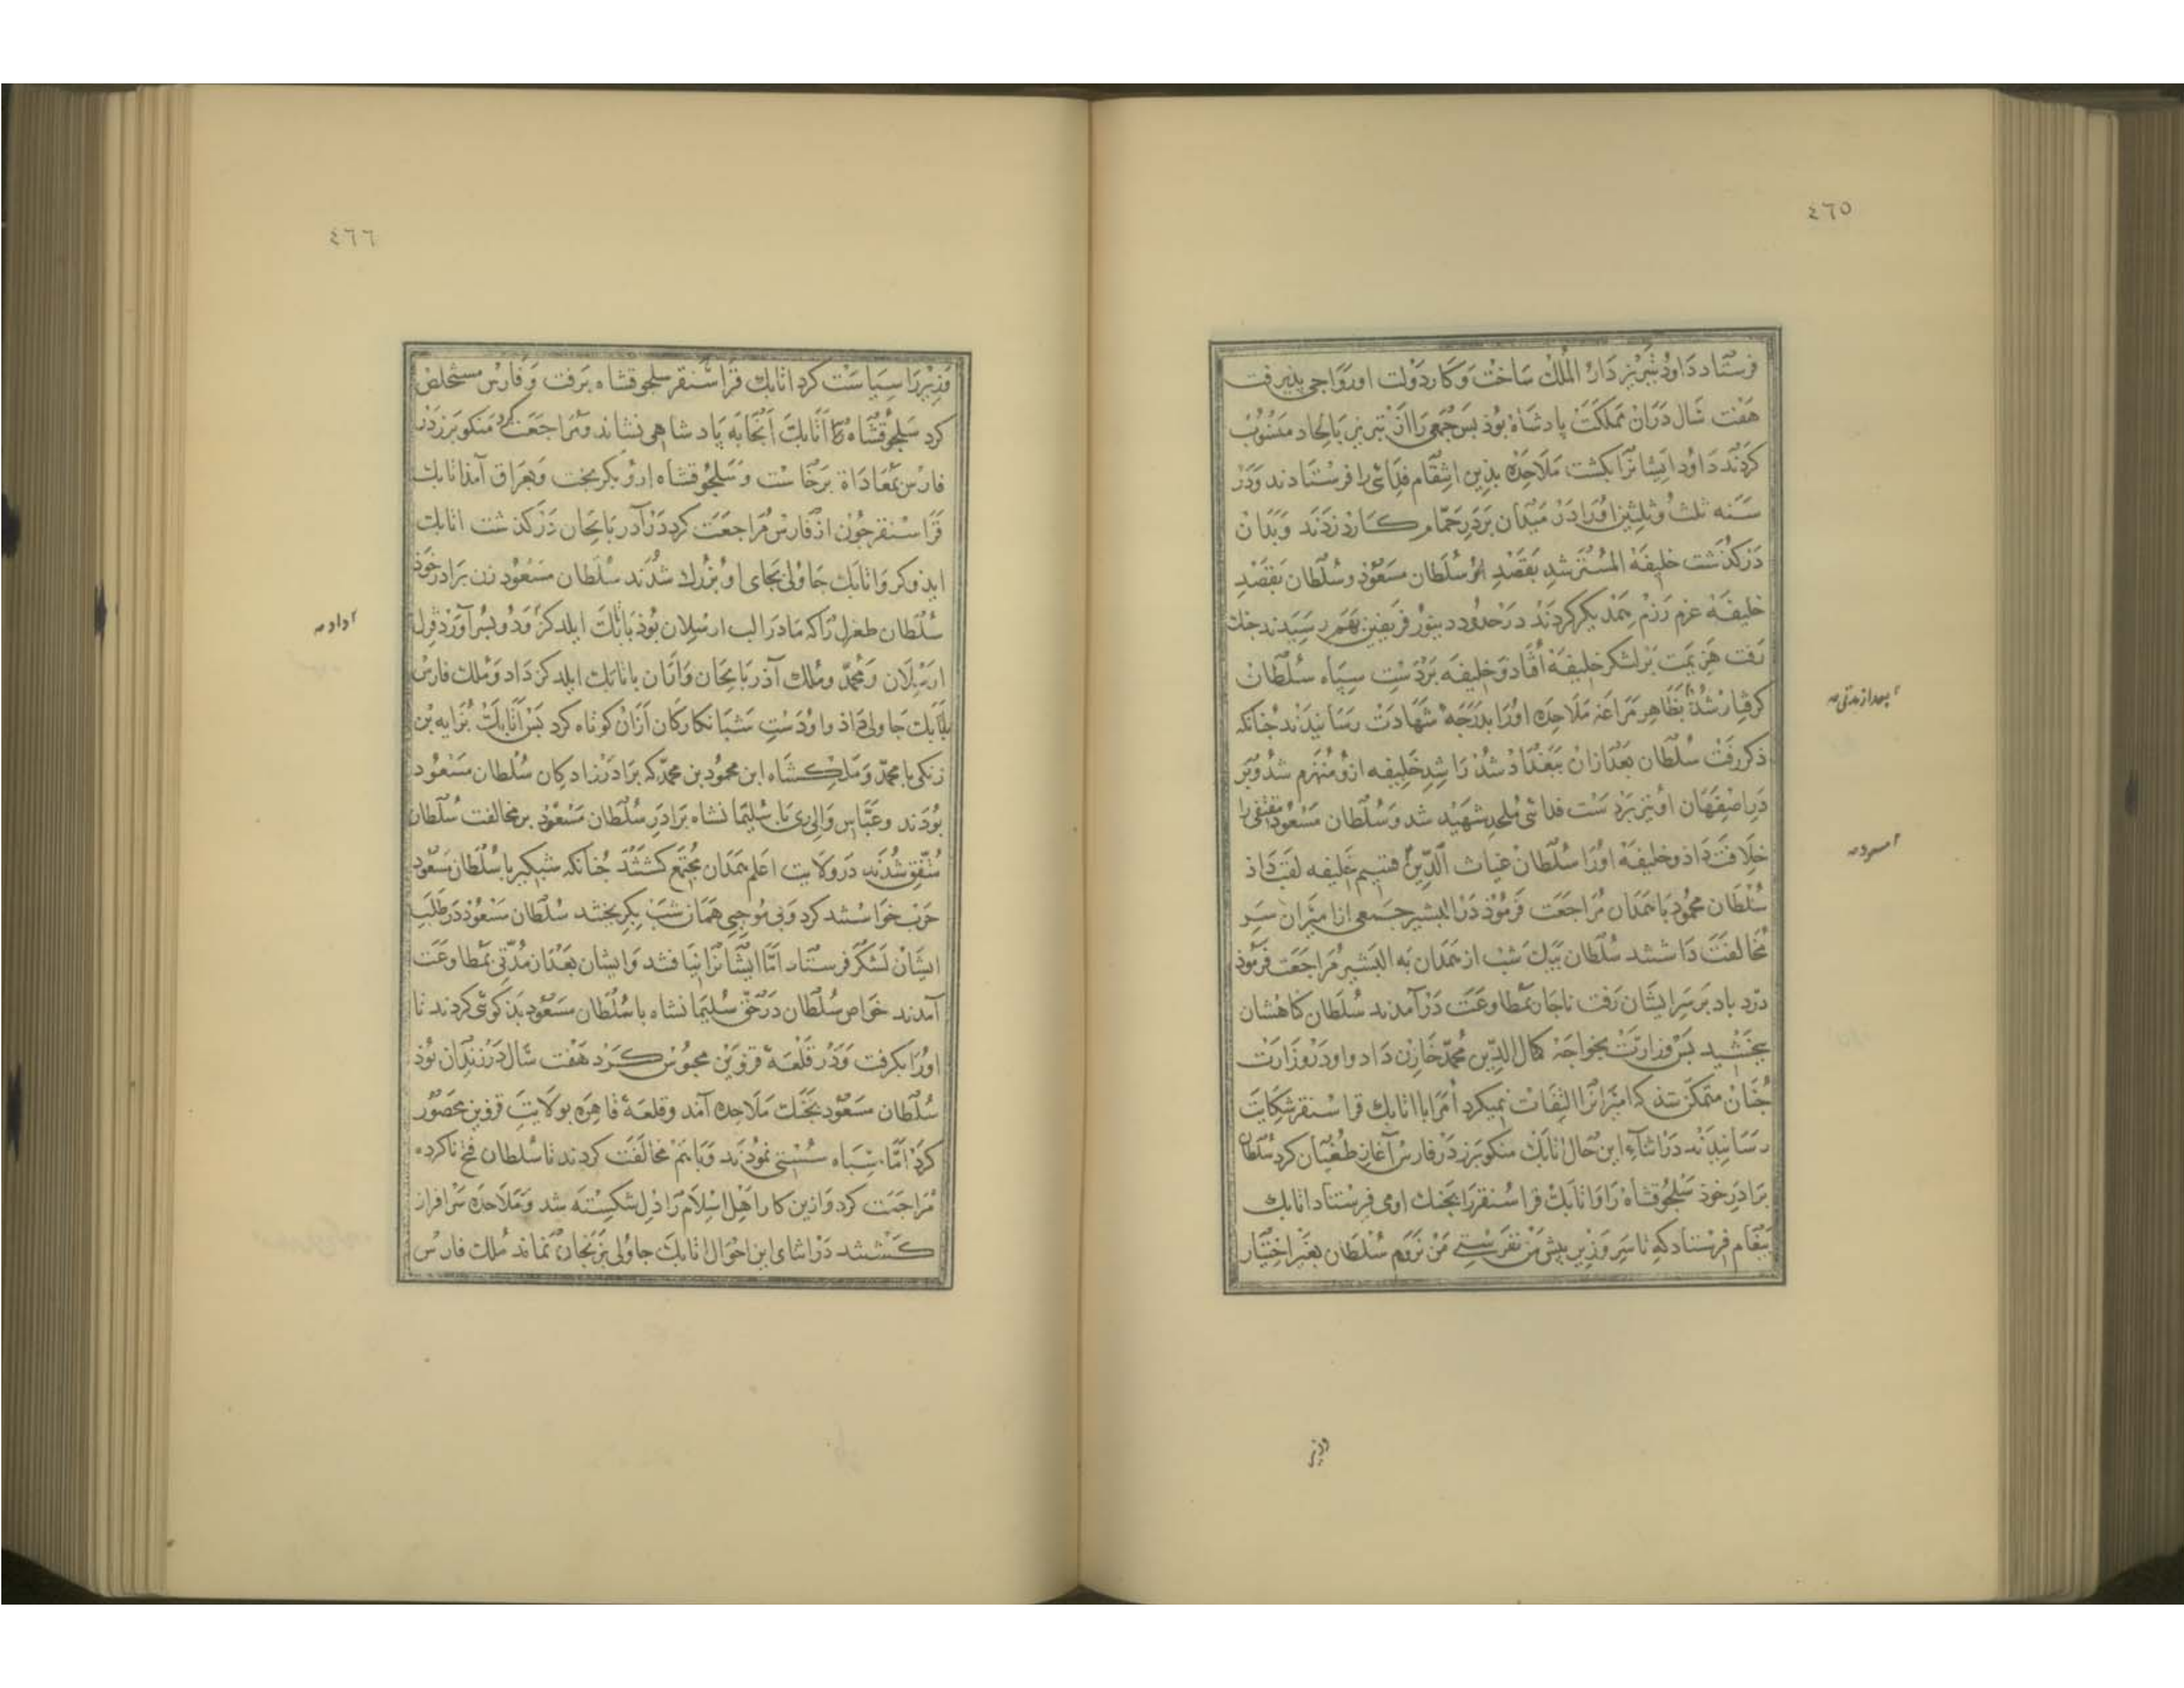 ٤٦٥
فرستاد داود تبریز دار الملك ساخت و کار دولت او رواجی پذیرفت
هفت سال دران مملکت پادشاه بوذ بس جمعی را از تبریز بالحاد منسوب
کردند داود ایشانرا بکشت ملاحده بذین انتقام فدائی را فرستادند و در
سنه ثلث و ثلثین اورا در میدان بر در حمام کارد زدند و بدان
درکذشت خلیفه المسترشد بقصد سلطان مسعوذ و سلطان بقصد
خلیفه عزم رزم یکدیکر کردند در حدود دینور فریقین بهم رسیدند جنك
رفت هزیمت بر لشکر خلیفه افتاد و خلیفه بر دست سپاه سلطان
کرفتار شد بظاهر مراغه ملاحده اورا بدرجه شهادت رسانیدند جنانکه
بعد از مدتی
ذکر رفت سلطان بعد ازان ببغداذ شذ راشد خلیفه ازو منهزم شذ و بر
در اصفهان او نیز بر دست فدائی ملحد شهید شد و سلطان مسعوذ مقتفی را
خلافت داذ و خلیفه اورا سلطان غیاث الدین قسیم خلیفه لقب داذ
مسعود
سلطان محمود با همدان مراجعت فرموذ در البشیر جمعی از امیران سر
مخالفت داشتند سلطان بیك شب از همدان به البشیر مراجعت فرموذ
درد باد بر سر ایشان رفت ناجار بمطاوعت درآمدند سلطان کناهشان
ببخشید بس وزارت بخواجه کمال الدین محمد خازن داد و او در وزارت
جنان متمکن شذ که امیرانرا التفات نمیکرد امرا با اتابك قراسنقر شکایت
رسانیدند در اثناء این حال اتابك منکوبرز در فارس آغاز طغیان کرد سلطان
برادر خوذ سلجوقشاه را و اتابك قراسنقر را بجنك او می فرستاد اتابك
پیغام فرستاد که تا سر وزیر پیش من نفرستی من نروم سلطان بغیر اختیار
وزیر
٤٦٦
وزیر را سیاست کرد اتابك قراسنقر سلجوقشاه برفت و فارس مستخلص
کرد سلجوقشاه را اتابك آنجا به پادشاهی نشاند و مراجعت کرد منکوبرز در
فارس بمعاداة برخاست و سلجوقشاه ازو بکریخت و بعراق آمد اتابك
قراسنقر جون از فارس مراجعت کرد در آدربایجان درکذشت اتابك
ایلدوکز و اتابك جاولی بجای او بزرك شدند سلطان مسعود زن برادر خوذ
سلطان طغرل را که مادر الب ارسلان بوذ باتابك ایلدکز و دو پسر آورد قزل
داد
ارسلان و محمد و ملك آذربایجان و اران باتابك ایلدکز داد و ملك فارس
باتابك جاولی داذ و او دست شبانکارکان ازان کوتاه کرد بس اتابك بزابه بن
زنکی با محمد و ملکشاه ابن محمود بن محمد که برادرزادکان سلطان مسعود
بودند و عباس والی ری با سلیمانشاه برادر سلطان مسعوذ بر مخالفت سلطان
متفق شدند در ولایت اعلم همدان مجتمع کشتند جنانکه شبکیر با سلطان مسعود
حرب خواستند کرد و بی موجبی همان شب بکریختند سلطان مسعوذ در طلب
ایشان لشکر فرستاد اما ایشانرا نیافتند و ایشان بعد از مدتی بمطاوعت
آمدند خواص سلطان در حق سلیمانشاه با سلطان مسعود بذکوئی کردند تا
اورا بکرفت و در قلعه قزوین محبوس کرد هفت سال در زندان بوذ
سلطان مسعود بجنك ملاحده آمد و قلعه قاهره بولایت قزوین محصور
کرد اما سپاه سستی نمودند و باهم مخالفت کردند تا سلطان فتح ناکرده
مراجعت کرد و ازین کار اهل اسلام را دل شکسته شد و ملاحده سرافراز
کشتند در اثنای این احوال اتابك جاولی بزنجان نماند ملك فارس